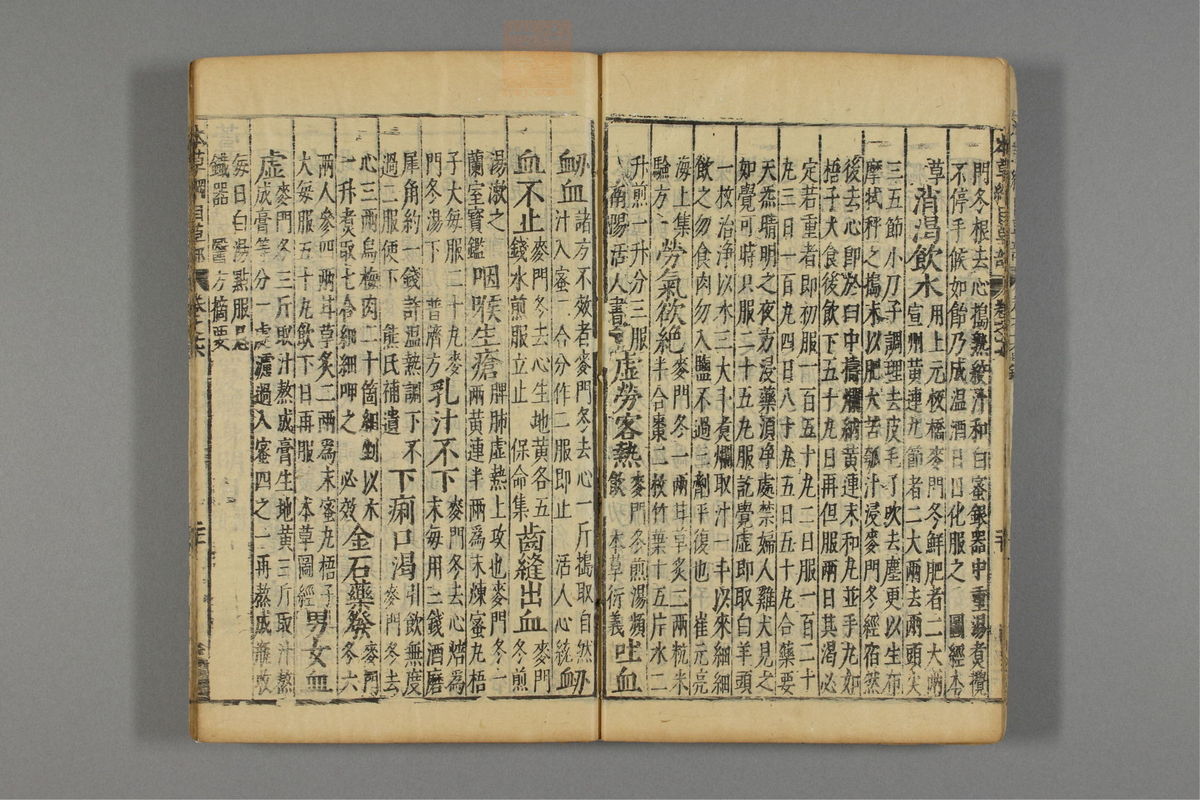 門冬根去心搗熟絞汁和白蜜銀器中重湯煮攪
不停手候如飴乃成温酒日日化服之　圖經本
草　消渴飲水　用上元板橋麥門冬鮮肥者二大兩
宣州黄連九節者二大兩去兩頭尖
三五節小刀子調理去皮毛了吹去塵更以生布
摩拭秤之搗末以肥大苦瓠汁浸麥門冬經宿然
後去心即於臼中擣爛納黄連末和丸並手丸如
梧子大食後飲下五十丸日再但服兩日其渴必
定若重者即初服一百五十丸二日服一百二十
丸三日一百丸四日八十丸五日五十丸合藥要
天炁晴明之夜方浸藥須淨處禁婦人雞犬見之
如覺可時只服二十五丸服訖覺虛即取白羊頭
一枚治淨以水三大斗煮爛取汁一斗以來細細
飲之勿食肉勿入鹽不過三劑平復也　崔元亮
海上集
驗方　勞氣欲絶　麥門冬一兩甘草炙二兩粳米
半合棗二枚竹葉十五片水二
升煎一升分三服
南陽活人書　虛勞客熱　麥門冬煎湯頻
飲　本草衍義　吐血
衂血　諸方不效者麥門冬去心一斤搗取自然
汁入蜜二合分作二服即止　活人心統　衂
血不止　麥門冬去心生地黄各五
錢水煎服立止　保命集　齒縫出血　麥門
冬煎
湯漱之
蘭室寶鑑　咽喉生瘡　脾肺虛熱上攻也麥門冬一
兩黄連半兩爲末煉蜜丸梧
子大每服二十丸麥
門冬湯下　普濟方　乳汁不下　麥門冬去心焙爲
末每用三錢酒磨
犀角約一錢許温熱調下不
過二服便下　熊氏補遺　下痢口渴　引飲無度
麥門冬去
心三兩烏梅肉二十箇細剉以水
一升煮取七合細細呷之　必效　金石藥發　麥門
冬六
兩人參四兩甘草炙二兩爲末蜜丸梧子
大每服五十丸飲下日再服　本草圖經　男女血
虛　麥門冬三斤取汁熬成膏生地黄三斤取汁熬
成膏等分一處濾過入蜜四之一再熬成瓷收
每日白湯點服忌
鐵器　醫方摘要
本草綱目草部　卷之十六　二十